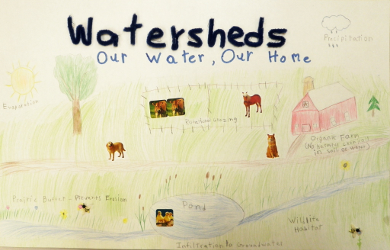 Watersheds
Our Water, Our Home
Precipitation
Evaporation
Rotational Grazing
Organic Farm
in soil or water)
Prairie Buffer - Prevents Erosion
Pond
Wildlife
Habitat
Infiltration to Groundwater